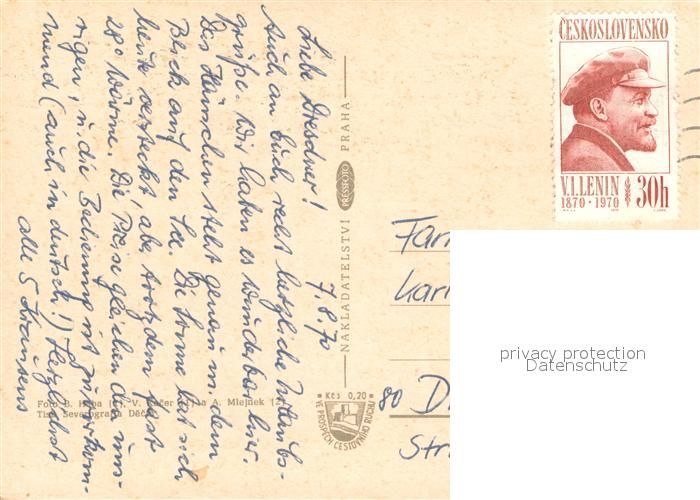 Liebe Dresdner!
7.8.70
Auch an Euch recht herzliche Urlaubs-
grüße. Wir haben es wunderbar hier.
Das Häuschen steht genau m. dem
Blick auf den See. Die Sonne hat sich
heute versteckt aber trotzdem fast
28° Wärme. Die Preise gleichen den uns-
rigen, u. die Bedienung ist zuvorkom-
mend (auch in deutsch!) Herzlichst
alle 5
NAKLADATELSTVÍ PRESSFOTO PRAHA
Foto B. V. A. Mlejnek
Tisk Severografia Děčín
Kčs 0,20
VE PROSPĚCH CESTOVNÍHO RUCHU
ČESKOSLOVENSKO
V.I.LENIN 30h
1870 · 1970
Fam
Karl
80 D
Str
privacy protection
Datenschutz